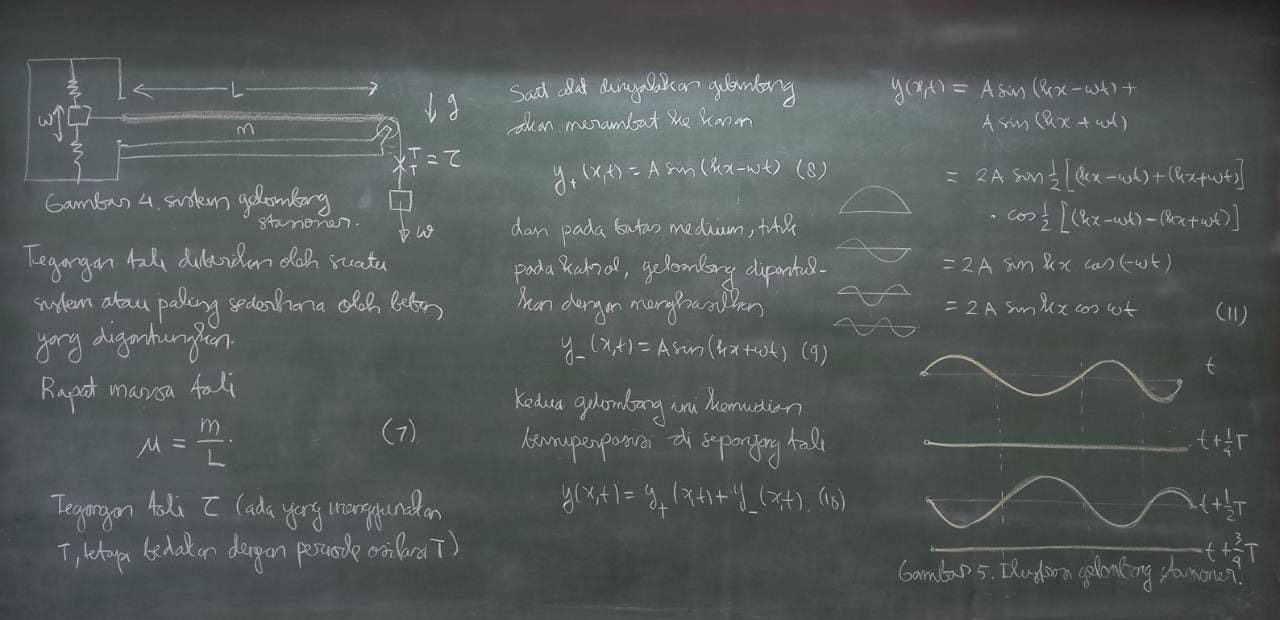 L
ω
m
↓ g
T
T = τ
w
Gambar 4. sistem gelombang
stasioner.
Tegangan tali diberikan oleh suatu
sistem atau paling sederhana oleh beban
yang digantungkan.
Rapat massa tali
μ = m/L. (7)
Tegangan tali τ (ada yang menggunakan
T, tetapi bedakan dengan periode osilasi T)
Saat alat dinyalakan gelombang
akan merambat ke kanan
y₊(x,t) = A sin (kx-ωt) (8)
dan pada batas medium, titik
pada katrol, gelombang dipantul-
kan dengan menghasilkan
y₋(x,t) = A sin (kx+ωt) (9)
Kedua gelombang ini kemudian
bersuperposisi di sepanjang tali
y(x,t) = y₊(x,t) + y₋(x,t). (10)
y(x,t) = A sin (kx-ωt) +
A sin (kx+ωt)
= 2A sin ½ [(kx-ωt)+(kx+ωt)]
· cos ½ [(kx-ωt)-(kx+ωt)]
= 2A sin kx cos (-ωt)
= 2A sin kx cos ωt (11)
t
t + ¼T
t + ½T
t + ¾T
Gambar 5. Ilustrasi gelombang stasioner.